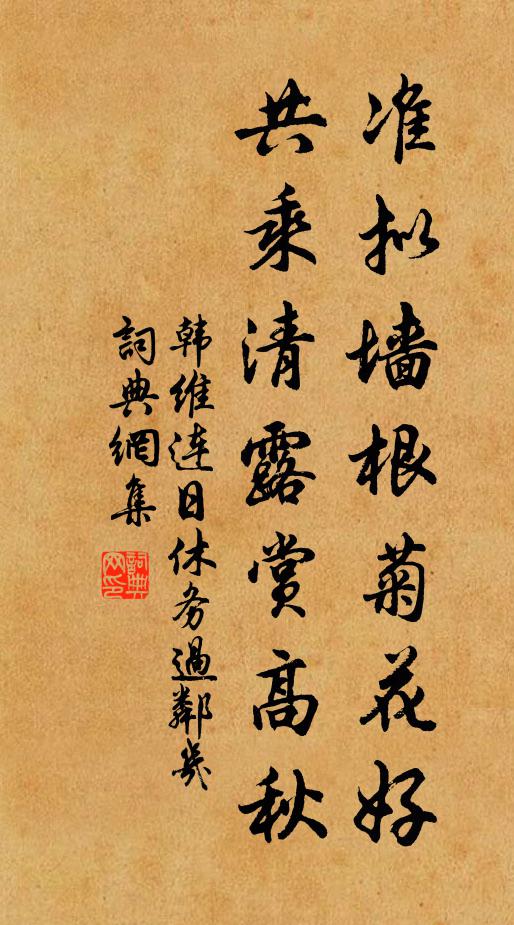 准拟墙根菊花好
共乘清露赏高秋
韩维连日休务過鄰幾
詞典網集
詞典
网印